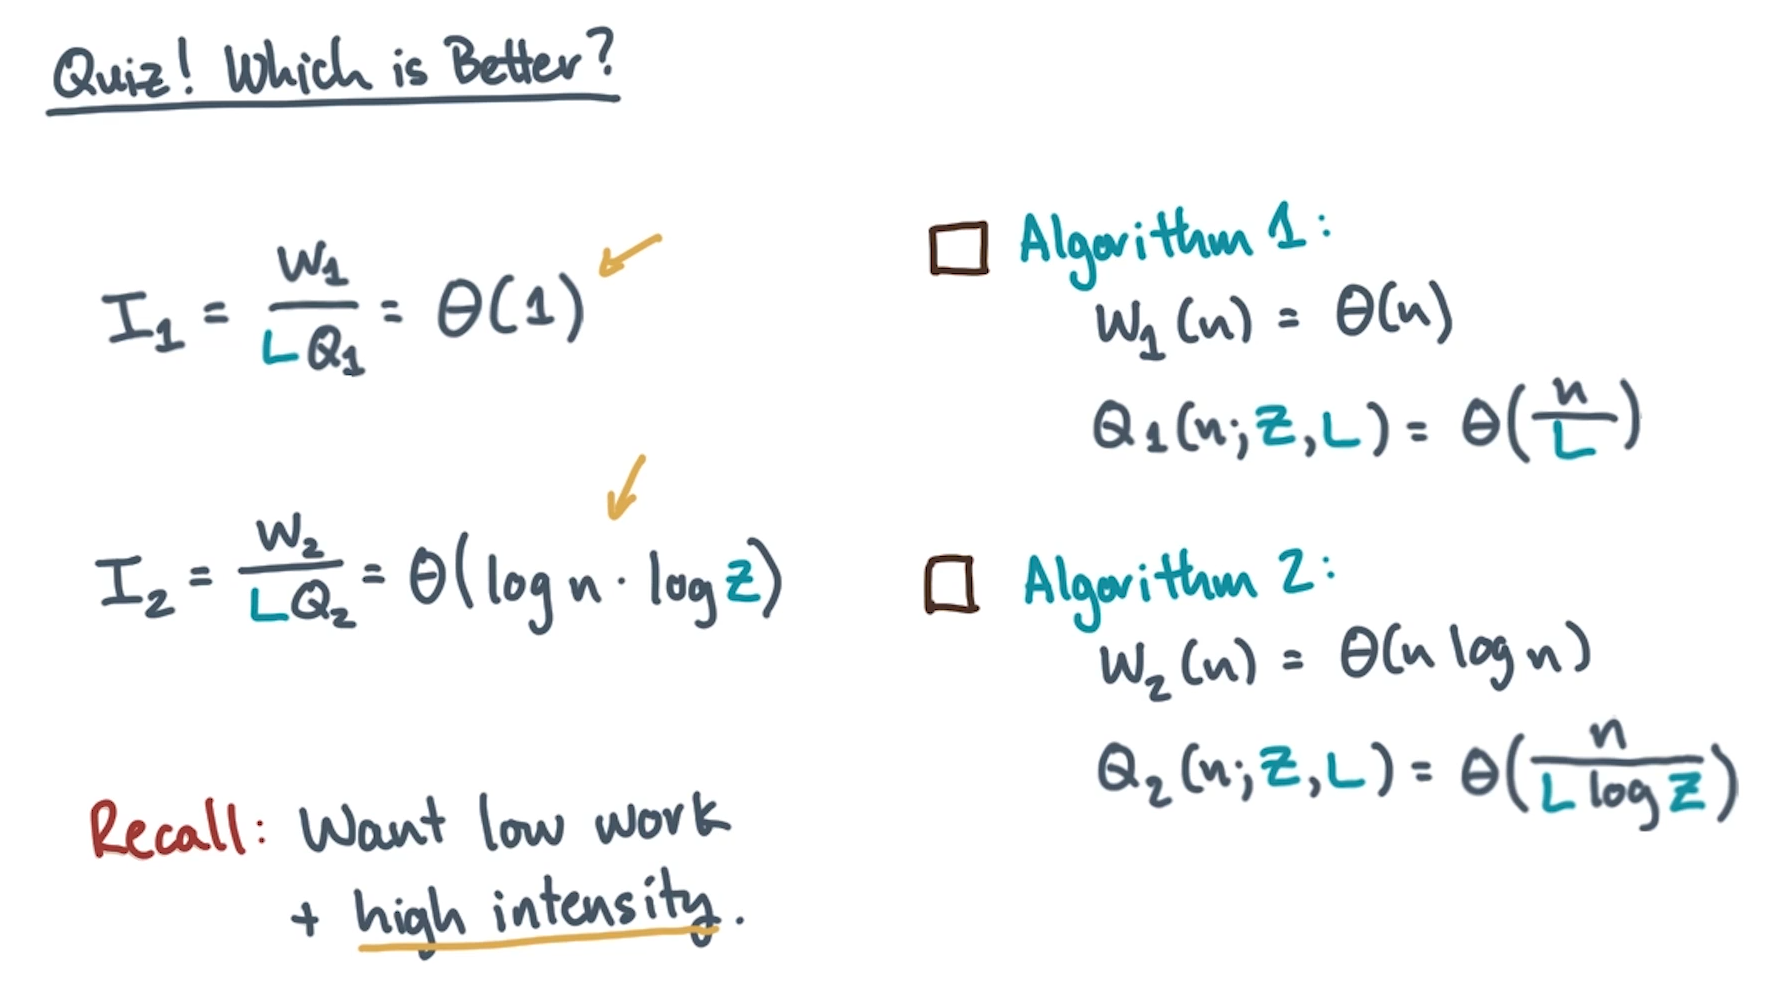 Quiz! Which is Better?
I₁ = W₁ / (L Q₁) = Θ(1)
I₂ = W₂ / (L Q₂) = Θ(log n · log Z)
Recall: Want low work
+ high intensity.
Algorithm 1:
W₁(n) = Θ(n)
Q₁(n; Z, L) = Θ(n / L)
Algorithm 2:
W₂(n) = Θ(n log n)
Q₂(n; Z, L) = Θ(n / (L log Z))